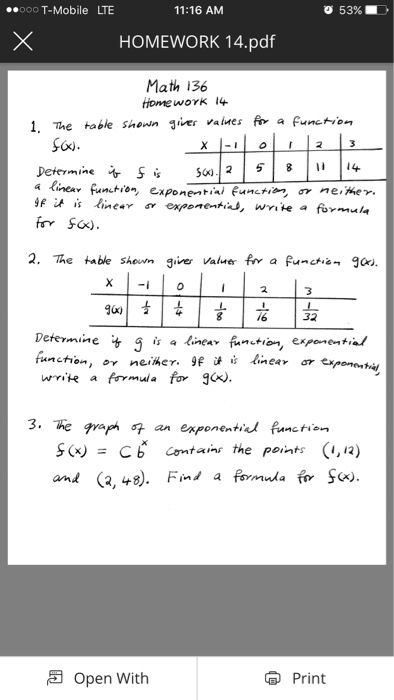 T-Mobile LTE 11:16 AM 53%
HOMEWORK 14.pdf
Math 136
Homework 14
1. The table shown gives values for a function
f(x).
x -1 0 1 2 3
f(x) 2 5 8 11 14
Determine if f is
a linear function, exponential function, or neither.
If it is linear or exponential, write a formula
for f(x).
2. The table shown gives values for a function g(x).
x -1 0 1 2 3
g(x) 1/2 1/4 1/8 1/16 1/32
Determine if g is a linear function, exponential
function, or neither. If it is linear or exponential,
write a formula for g(x).
3. The graph of an exponential function
f(x) = Cb^x contains the points (1,12)
and (2,48). Find a formula for f(x).
Open With
Print